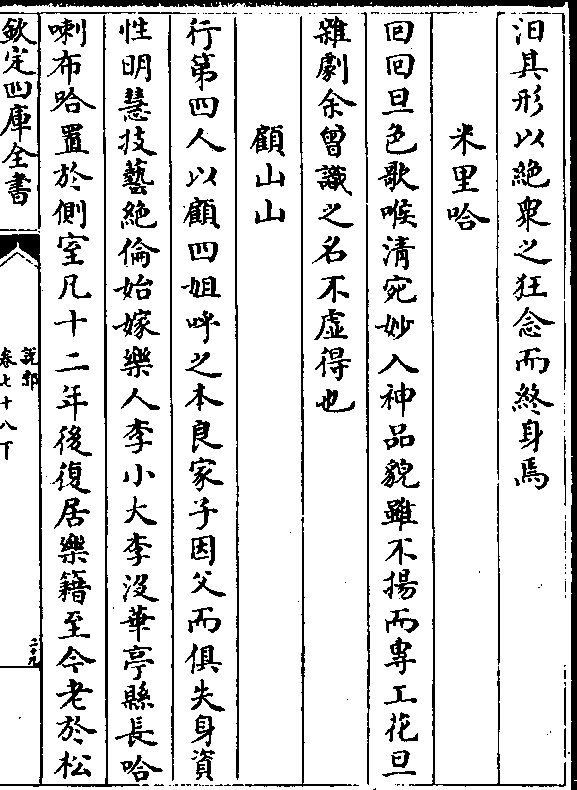 汨其形以絶衆之狂念而終身焉
米里哈
回回旦色歌喉清宛妙入神品貌雖不揚而專工花旦
雜劇余曾識之名不虛得也
顧山山
行第四人以顧四姐呼之本良家子因父而俱失身資
性明慧技藝絶倫始嫁樂人李小大李沒華亭縣長哈
喇布哈置於側室凡十二年後復居樂籍至今老於松
欽定四庫全書
說郛
卷七十八下
二十九